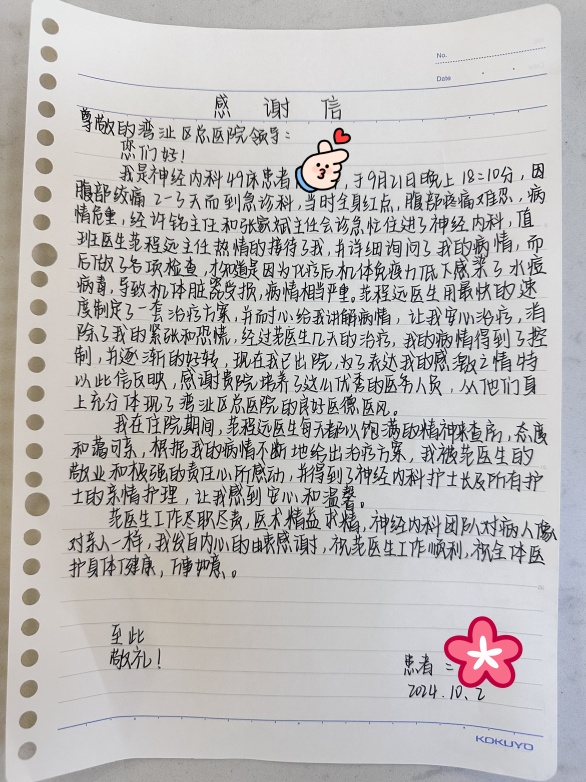 No.
Date
感 谢 信
尊敬的湾沚区总医院领导：
您们好！
我是神经内科49床患者 ，于9月21日晚上18：10分，因
腹部绞痛2-3天而到急诊科，当时全身红点，腹部疼痛难忍，病
情危重，经许铭主任和张家斌主任会诊急忙住进了神经内科，值
班医生范程远主任热情的接待了我，并详细询问了我的病情，而
后做了各项检查，才知道是因为化疗后机体免疫力低下感染了水痘
病毒，导致机体脏器受损，病情相当严重。范程远医生用最快的速
度制定了一套治疗方案，并耐心给我讲解病情，让我安心治疗，消
除了我的紧张和恐慌，经过范医生几天的治疗，我的病情得到了控
制，并逐渐的好转，现在我已出院，为了表达我的感激之情特
以此信反映，感谢贵院培养了这么优秀的医务人员，从他们身
上充分体现了湾沚区总医院的良好医德医风。
我在住院期间，范程远医生每天都以饱满的精神来查房，态度
和蔼可亲，根据我的病情不断地给出治疗方案，我被范医生的
敬业和极强的责任心所感动，并得到了神经内科护士长及所有护
士的亲情护理，让我感到安心和温馨。
范医生工作尽职尽责，医术精益求精，神经内科团队对病人像
对亲人一样，我发自内心的由衷感谢，祝范医生工作顺利，祝全体医
护身体健康，万事如意。
至此
敬礼！
患者：
2024.10.2
KOKUYO